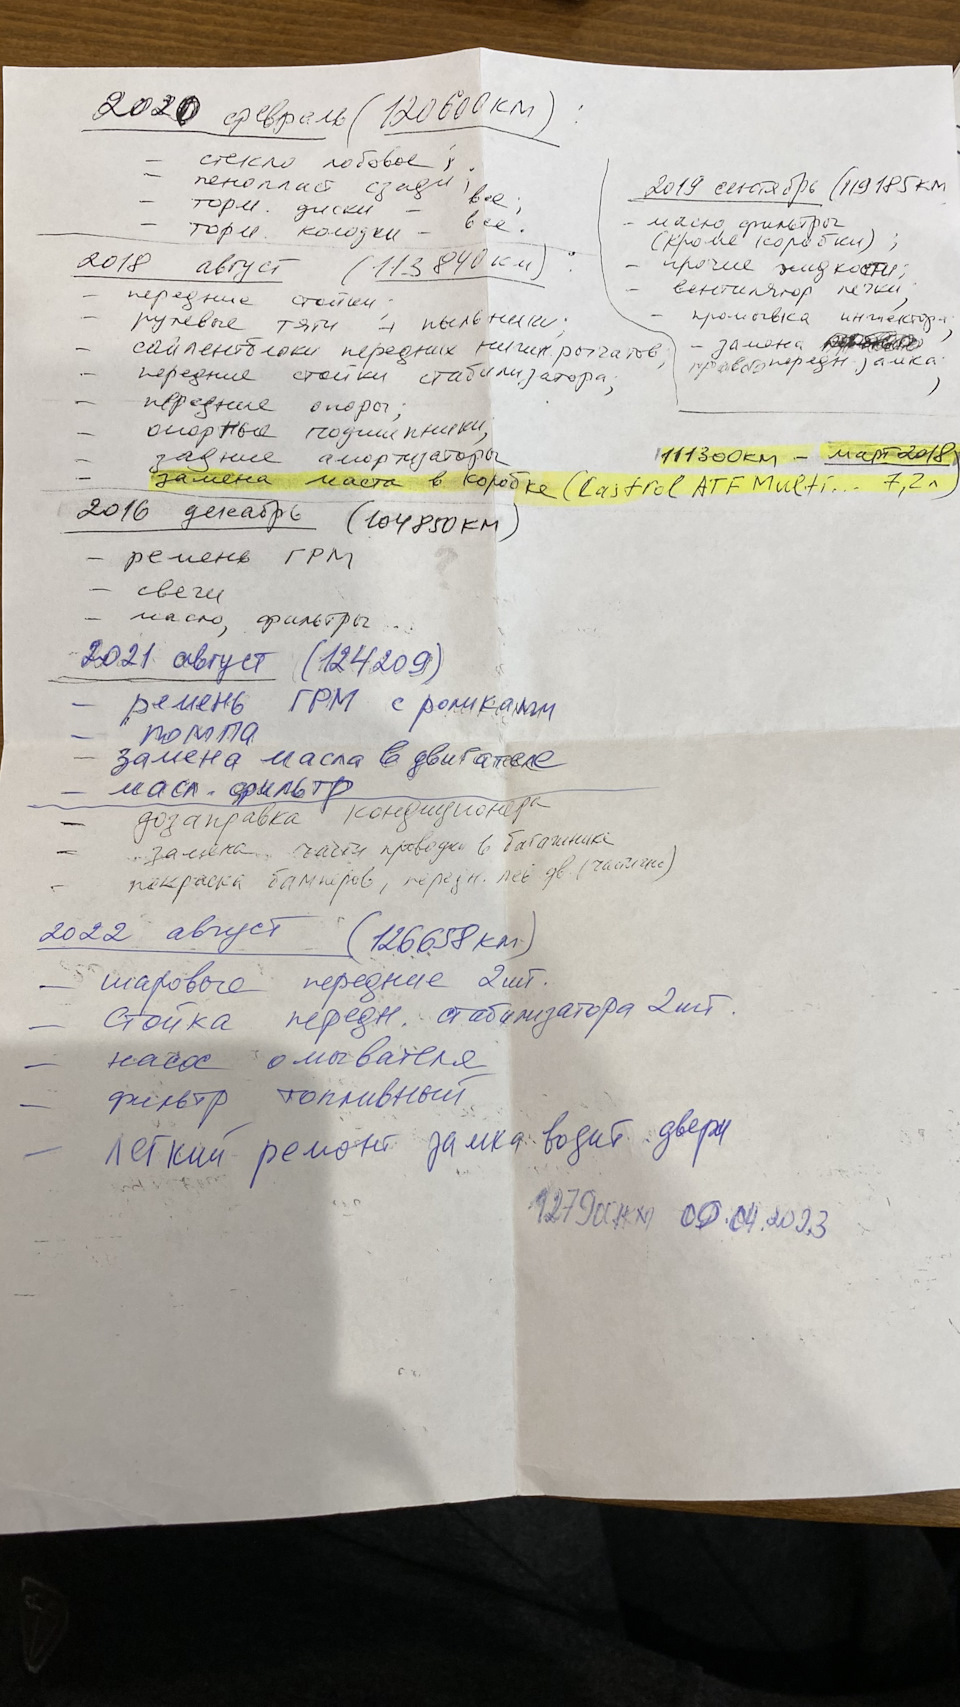 2020 февраль (120600км) :
- стекло лобовое ;
- пенопласт сзади ;
- торм. диски - все ;
- торм. колодки - все.
2019 сентябрь (119185км
- масло фильтры
(кроме коробки) ;
- прочие жидкости;
- вентилятор печки;
- промывка инжектора;
- замена
правого передн. замка
;
2018 август (113840км) :
- передние стойки;
- рулевые тяги + пыльники;
- сайлентблоки передних нижн. рычагов;
- передние стойки стабилизатора;
- передние опоры;
- опорные подшипники;
- задние амортизаторы
111300км - март 2018)
- замена масла в коробке (Castrol ATF Multi... 7,2л)
2016 декабрь (104850км)
- ремень ГРМ
- свечи
- масло, фильтры ...
2021 август (124209)
- ремень ГРМ с роликами
- помпа
- замена масла в двигателе
- масл. фильтр
- дозаправка кондиционера
- замена части проводки в багажнике
- покраска бамперов, передн. лев дв (частично)
2022 август (126658км)
- шаровые передние 2шт.
- стойка передн. стабилизатора 2шт.
- насос омывателя
- фильтр топливный
- легкий ремонт замка водит двери
127900км .04.2023